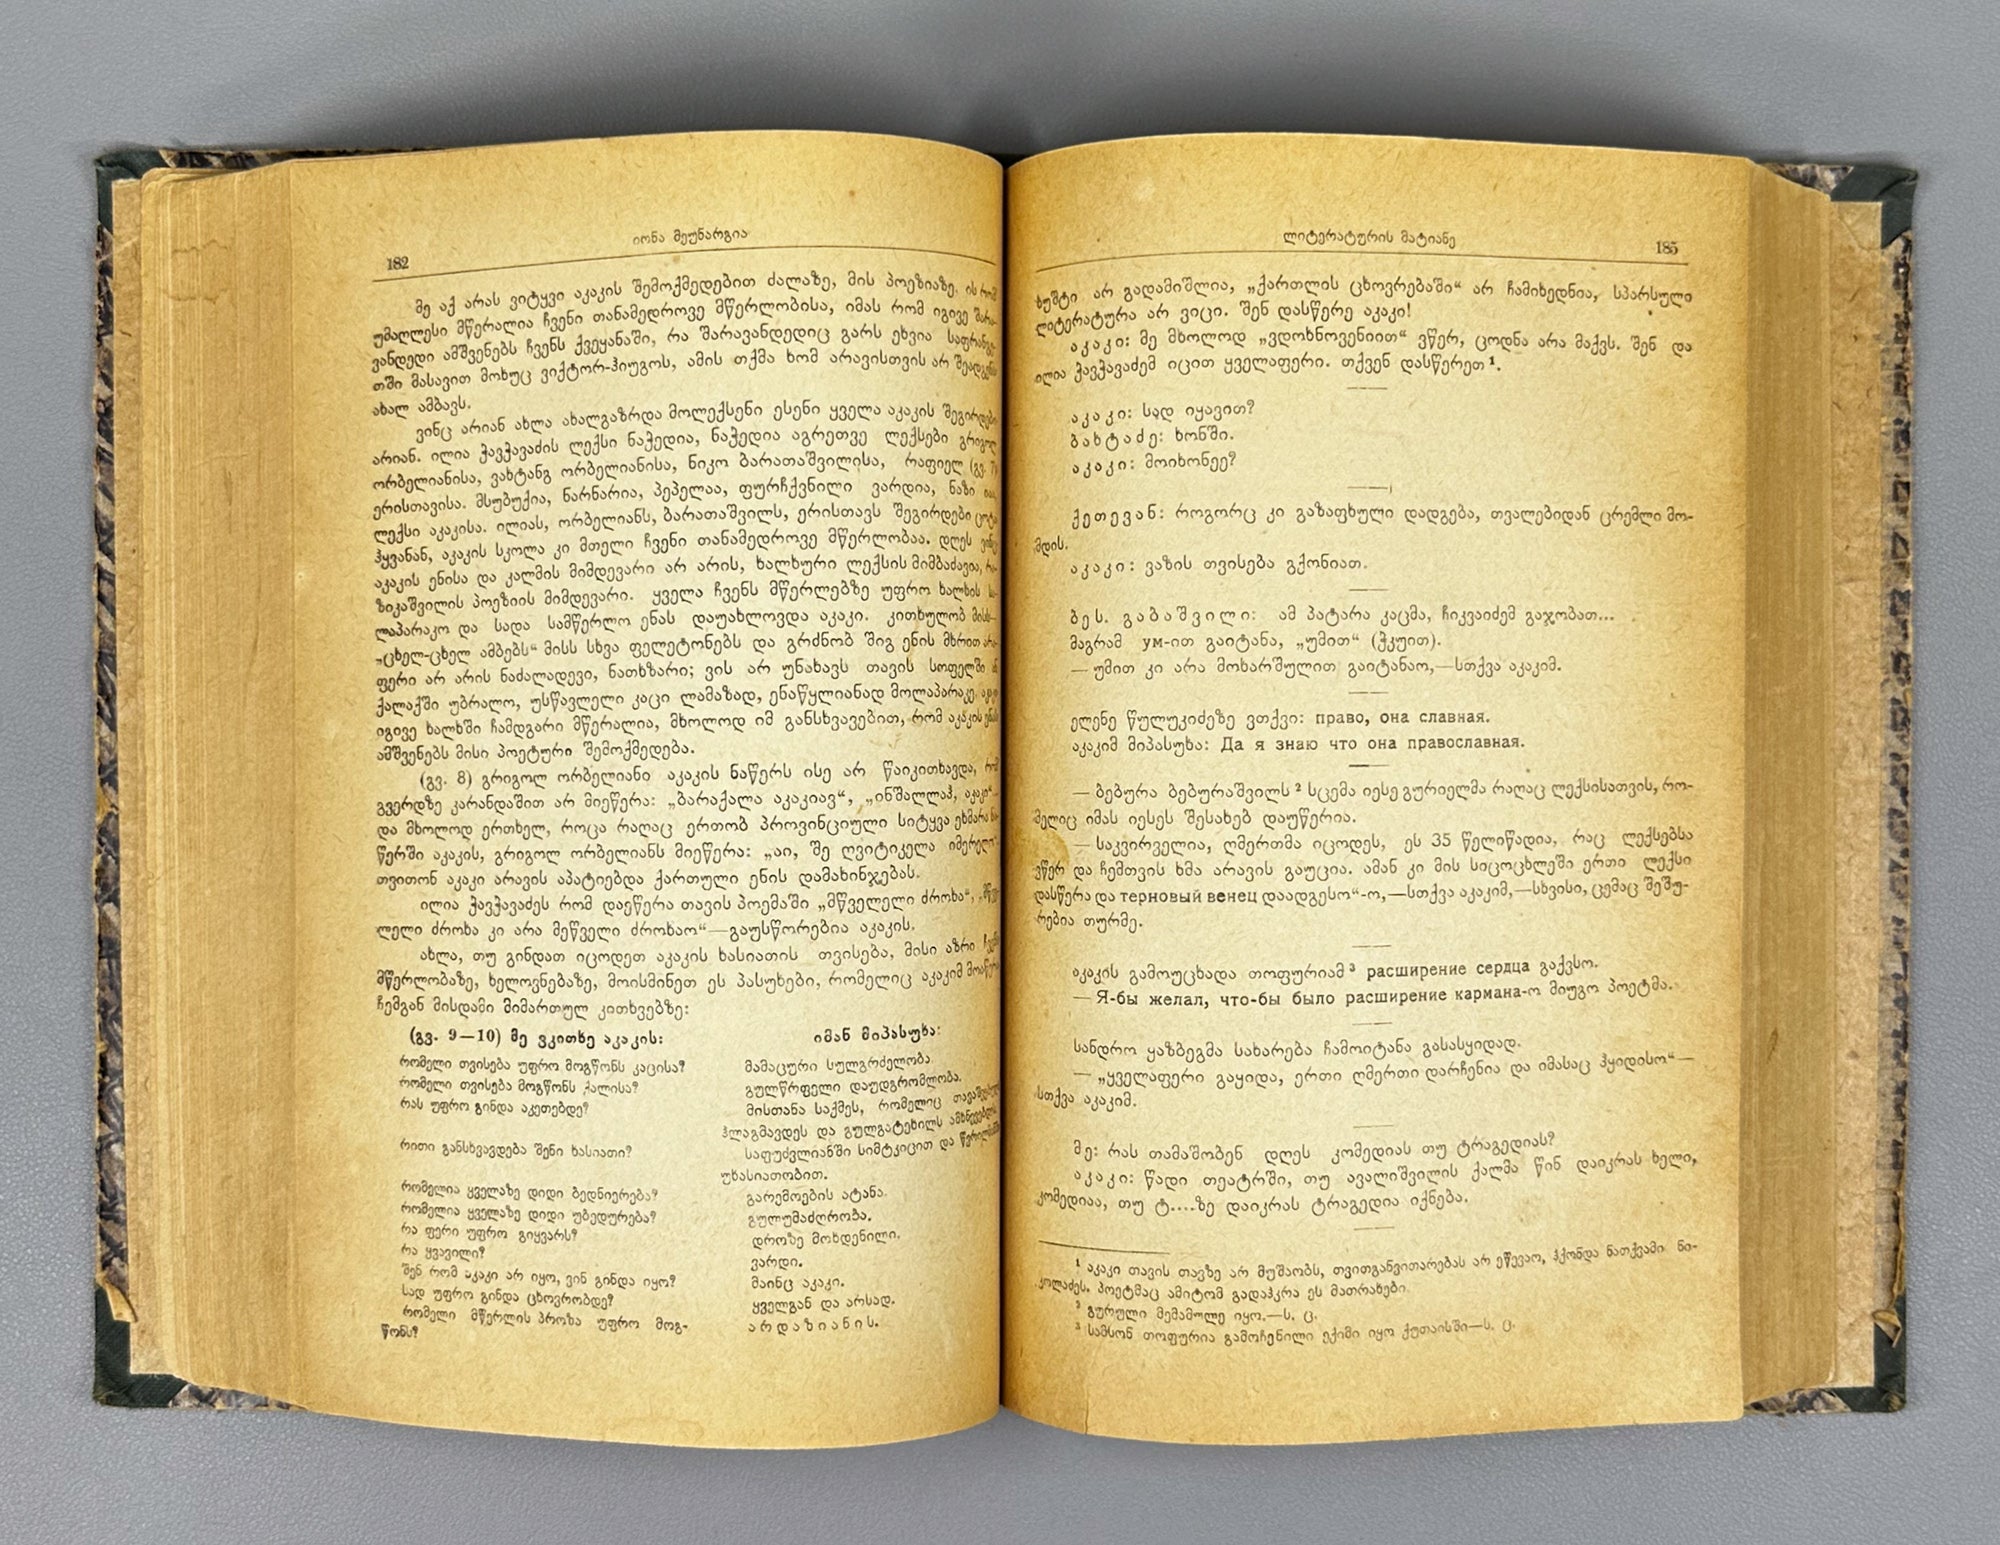 182
იონა მეუნარგია
მე აქ არას ვიტყვი აკაკის შემოქმედებით ძალაზე, მის პოეზიაზე. ის რომ
უმაღლესი მწერალია ჩვენი თანამედროვე მწერლობისა, იმას რომ იგივე შარა-
ვანდედი ამშვენებს ჩვენს ქვეყანაში, რა შარავანდედიც გარს ეხვია საფრანგე-
თში მასავით მოხუც ვიქტორ-ჰიუგოს, ამის თქმა ხომ არავისთვის არ შეადგენს
ახალ ამბავს.
ვინც არიან ახლა ახალგაზრდა მოლექსენი ესენი ყველა აკაკის შეგირდები
არიან. ილია ჭავჭავაძის ლექსი ნაჭედია, ნაჭედია აგრეთვე ლექსები გრიგოლ
ორბელიანისა, ვახტანგ ორბელიანისა, ნიკო ბარათაშვილისა, რაფიელ (გვ. 7)
ერისთავისა. მსუბუქია, ნარნარია, პეპელაა, ფურჩქვნილი ვარდია, ნაზი
ლექსი აკაკისა. ილიას, ორბელიანს, ბარათაშვილს, ერისთავს შეგირდები ცოტა
ჰყვანან, აკაკის სკოლა კი მთელი ჩვენი თანამედროვე მწერლობაა. დღეს ვინც
აკაკის ენისა და კალმის მიმდევარი არ არის, ხალხური ლექსის მიმბაძავია, რა-
ზიკაშვილის პოეზიის მიმდევარი. ყველა ჩვენს მწერლებზე უფრო ხალხის სა-
ლაპარაკო და სადა სამწერლო ენას დაუახლოვდა აკაკი. კითხულობ მისს—
„ცხელ-ცხელ ამბებს“ მისს სხვა ფელეტონებს და გრძნობ შიგ ენის მხრით არა-
ფერი არ არის ნაძალადევი, ნათხზარი; ვის არ უნახავს თავის სოფელში ან
ქალაქში უბრალო, უსწავლელი კაცი ლამაზად, ენაწყლიანად მოლაპარაკე. აკაკი
იგივე ხალხში ჩამდგარი მწერალია, მხოლოდ იმ განსხვავებით, რომ აკაკის ენას
ამშვენებს მისი პოეტური შემოქმედება.
(გვ. 8) გრიგოლ ორბელიანი აკაკის ნაწერს ისე არ წაიკითხავდა, რომ
გვერდზე კარანდაშით არ მიეწერა: „ბარაქალა აკაკიავ“, „ინშალლაჰ, აკაკი“...
და მხოლოდ ერთხელ, როცა რაღაც ერთობ პროვინციული სიტყვა ეხმარა ნა-
წერში აკაკის, გრიგოლ ორბელიანს მიეწერა: „აი, შე ღვიტიკელა იმერელო“.
თვითონ აკაკი არავის აპატიებდა ქართული ენის დამახინჯებას.
ილია ჭავჭავაძეს რომ დაეწერა თავის პოემაში „მწველელი ძროხა“, „მწვე-
ლელი ძროხა კი არა მეწველი ძროხაო“—გაუსწორებია აკაკის.
ახლა, თუ გინდათ იცოდეთ აკაკის ხასიათის თვისება, მისი აზრი ჩვენს
მწერლობაზე, ხელოვნებაზე, მოისმინეთ ეს პასუხები, რომელიც აკაკიმ მოაწერა
ჩემგან მისდამი მიმართულ კითხვებზე:
(გვ. 9—10) მე ვკითხე აკაკის: იმან მიპასუხა:
რომელი თვისება უფრო მოგწონს კაცისა? მამაცური სულგრძელობა.
რომელი თვისება მოგწონს ქალისა? გულწრფელი დაუდგრომლობა.
რას უფრო გინდა აკეთებდე? მისთანა საქმეს, რომელიც
ჰლაგმავდეს და გულგატეხილს ამხნევებდეს.
რითი განსხვავდება შენი ხასიათი? საფუძვლიანში სიმტკიცით და წვრილმანში
უხასიათობით.
რომელია ყველაზე დიდი ბედნიერება? გარემოების ატანა.
რომელია ყველაზე დიდი უბედურება? გულუმაძღრობა.
რა ფერი უფრო გიყვარს? დროზე მოხდენილი.
რა ყვავილი? ვარდი.
შენ რომ აკაკი არ იყო, ვინ გინდა იყო? მაინც აკაკი.
სად უფრო გინდა ცხოვრობდე? ყველგან და არსად.
რომელი მწერლის პროზა უფრო მოგ- არდაზიანის.
წონს?
ლიტერატურის მატიანე
185
ხუშტი არ გადამიშლია, „ქართლის ცხოვრებაში“ არ ჩამიხედნია, სპარსული
ლიტერატურა არ ვიცი. შენ დასწერე აკაკი!
აკაკი: მე მხოლოდ „ვდოხნოვენიით“ ვწერ, ცოდნა არა მაქვს. შენ და
ილია ჭავჭავაძემ იცით ყველაფერი. თქვენ დასწერეთ¹.
აკაკი: სად იყავით?
ბახტაძე: ხონში.
აკაკი: მოიხონეე?
ქეთევან: როგორც კი გაზაფხული დადგება, თვალებიდან ცრემლი მო-
მდის.
აკაკი: ვაზის თვისება გქონიათ.
ბეს. გაბაშვილი: ამ პატარა კაცმა, ჩიკვაიძემ გაჯობათ...
მაგრამ ум-ით გაიტანა, „უმით“ (ჭკუით).
— უმით კი არა მოხარშულით გაიტანაო,—სთქვა აკაკიმ.
ელენე წულუკიძეზე ვთქვი: право, она славная.
აკაკიმ მიპასუხა: Да я знаю что она православная.
— ბებურა ბებურაშვილს² სცემა იესე გურიელმა რაღაც ლექსისათვის, რო-
მელიც იმას იესეს შესახებ დაუწერია.
— საკვირველია, ღმერთმა იცოდეს, ეს 35 წელიწადია, რაც ლექსებსა
ვწერ და ჩემთვის ხმა არავის გაუცია. ამან კი მის სიცოცხლეში ერთი ლექსი
დასწერა და терновый венец დაადგესო“-ო,—სთქვა აკაკიმ,—სხვისი, ცემაც შეშუ-
რებია თურმე.
აკაკის გამოუცხადა თოფურიამ³ расширение сердца გაქვსო.
— Я-бы желал, что-бы было расширение кармана-ო მიუგო პოეტმა.
სანდრო ყაზბეგმა სახარება ჩამოიტანა გასასყიდად.
— „ყველაფერი გაყიდა, ერთი ღმერთი დარჩენია და იმასაც ჰყიდისო“—
სთქვა აკაკიმ.
მე: რას თამაშობენ დღეს კომედიას თუ ტრაგედიას?
აკაკი: წადი თეატრში, თუ ავალიშვილის ქალმა წინ დაიკრას ხელი,
კომედიაა, თუ ტ....ზე დაიკრას ტრაგედია იქნება.
¹ აკაკი თავის თავზე არ მუშაობს, თვითგანვითარებას არ ეწევაო, ჰქონდა ნათქვამი ნი-
კოლაძეს. პოეტმაც ამიტომ გადაჰკრა ეს მათრახები.
² გურული მემამულე იყო.—ს. ც.
³ სამსონ თოფურია გამოჩენილი ექიმი იყო ქუთაისში—ს. ც.